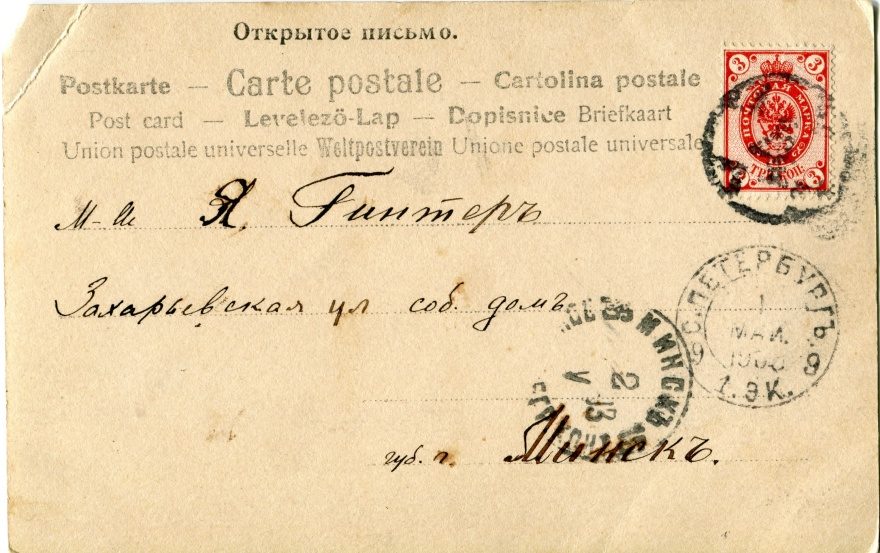 Открытое письмо.
Postkarte — Carte postale — Cartolina postale
Post card — Levelező-Lap — Dopisnice Briefkaart
Union postale universelle Weltpostverein Unione postale universale
3 3
ПОЧТОВАЯ МАРКА
ТРИ КОП.
3 3
М-и Я. Гинтеръ
Захарьевская ул соб. домъ
губ. г. Минскъ.
С. ПЕТЕРБУРГЪ.
1
МАЙ.
1. ЭК.
МИНСКЪ
2
V